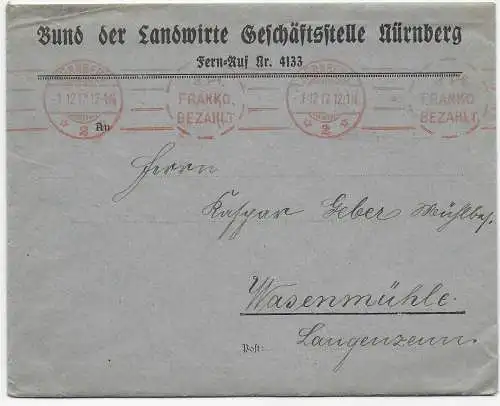 Bund der Landwirte Geschäftsstelle Nürnberg
Fern-Ruf Nr. 4133
NÜRNBERG FRANKO BEZAHLT NÜRNBERG FRANKO BEZAHLT
-1.12.17.12-1N. -1.12.17.12-1N.
2 2
An
Herrn
Kaspar Geber Mühlbes.
Wasenmühle.
Post: Langenzenn.